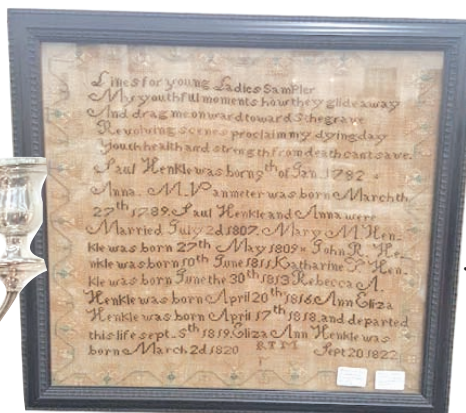 Lines for young Ladies Sampler
My youthful moments how they glide away
And drag me onward towards the grave
Revolving scenes proclaim my dying day
Youth health and strength from death cant save.
Paul Henkle was born 9th of Jan 1782
Anna. M. Vanmeter was born March th
27th 1789. Paul Henkle and Anna were
Married July 2d 1807. Mary M Hen-
kle was born 27th May 1809 John R He-
nkle was born 10th June 1811. Katharine Hen-
kle was born June the 30th 1813 Rebecca A.
Henkle was born April 20th 1816. Ann Eliza
Henkle was born April 17th 1818. and departed
this life sept. 5th 1819. Eliza Ann Henkle was
born March 2d 1820 RTM Sept 20 1822